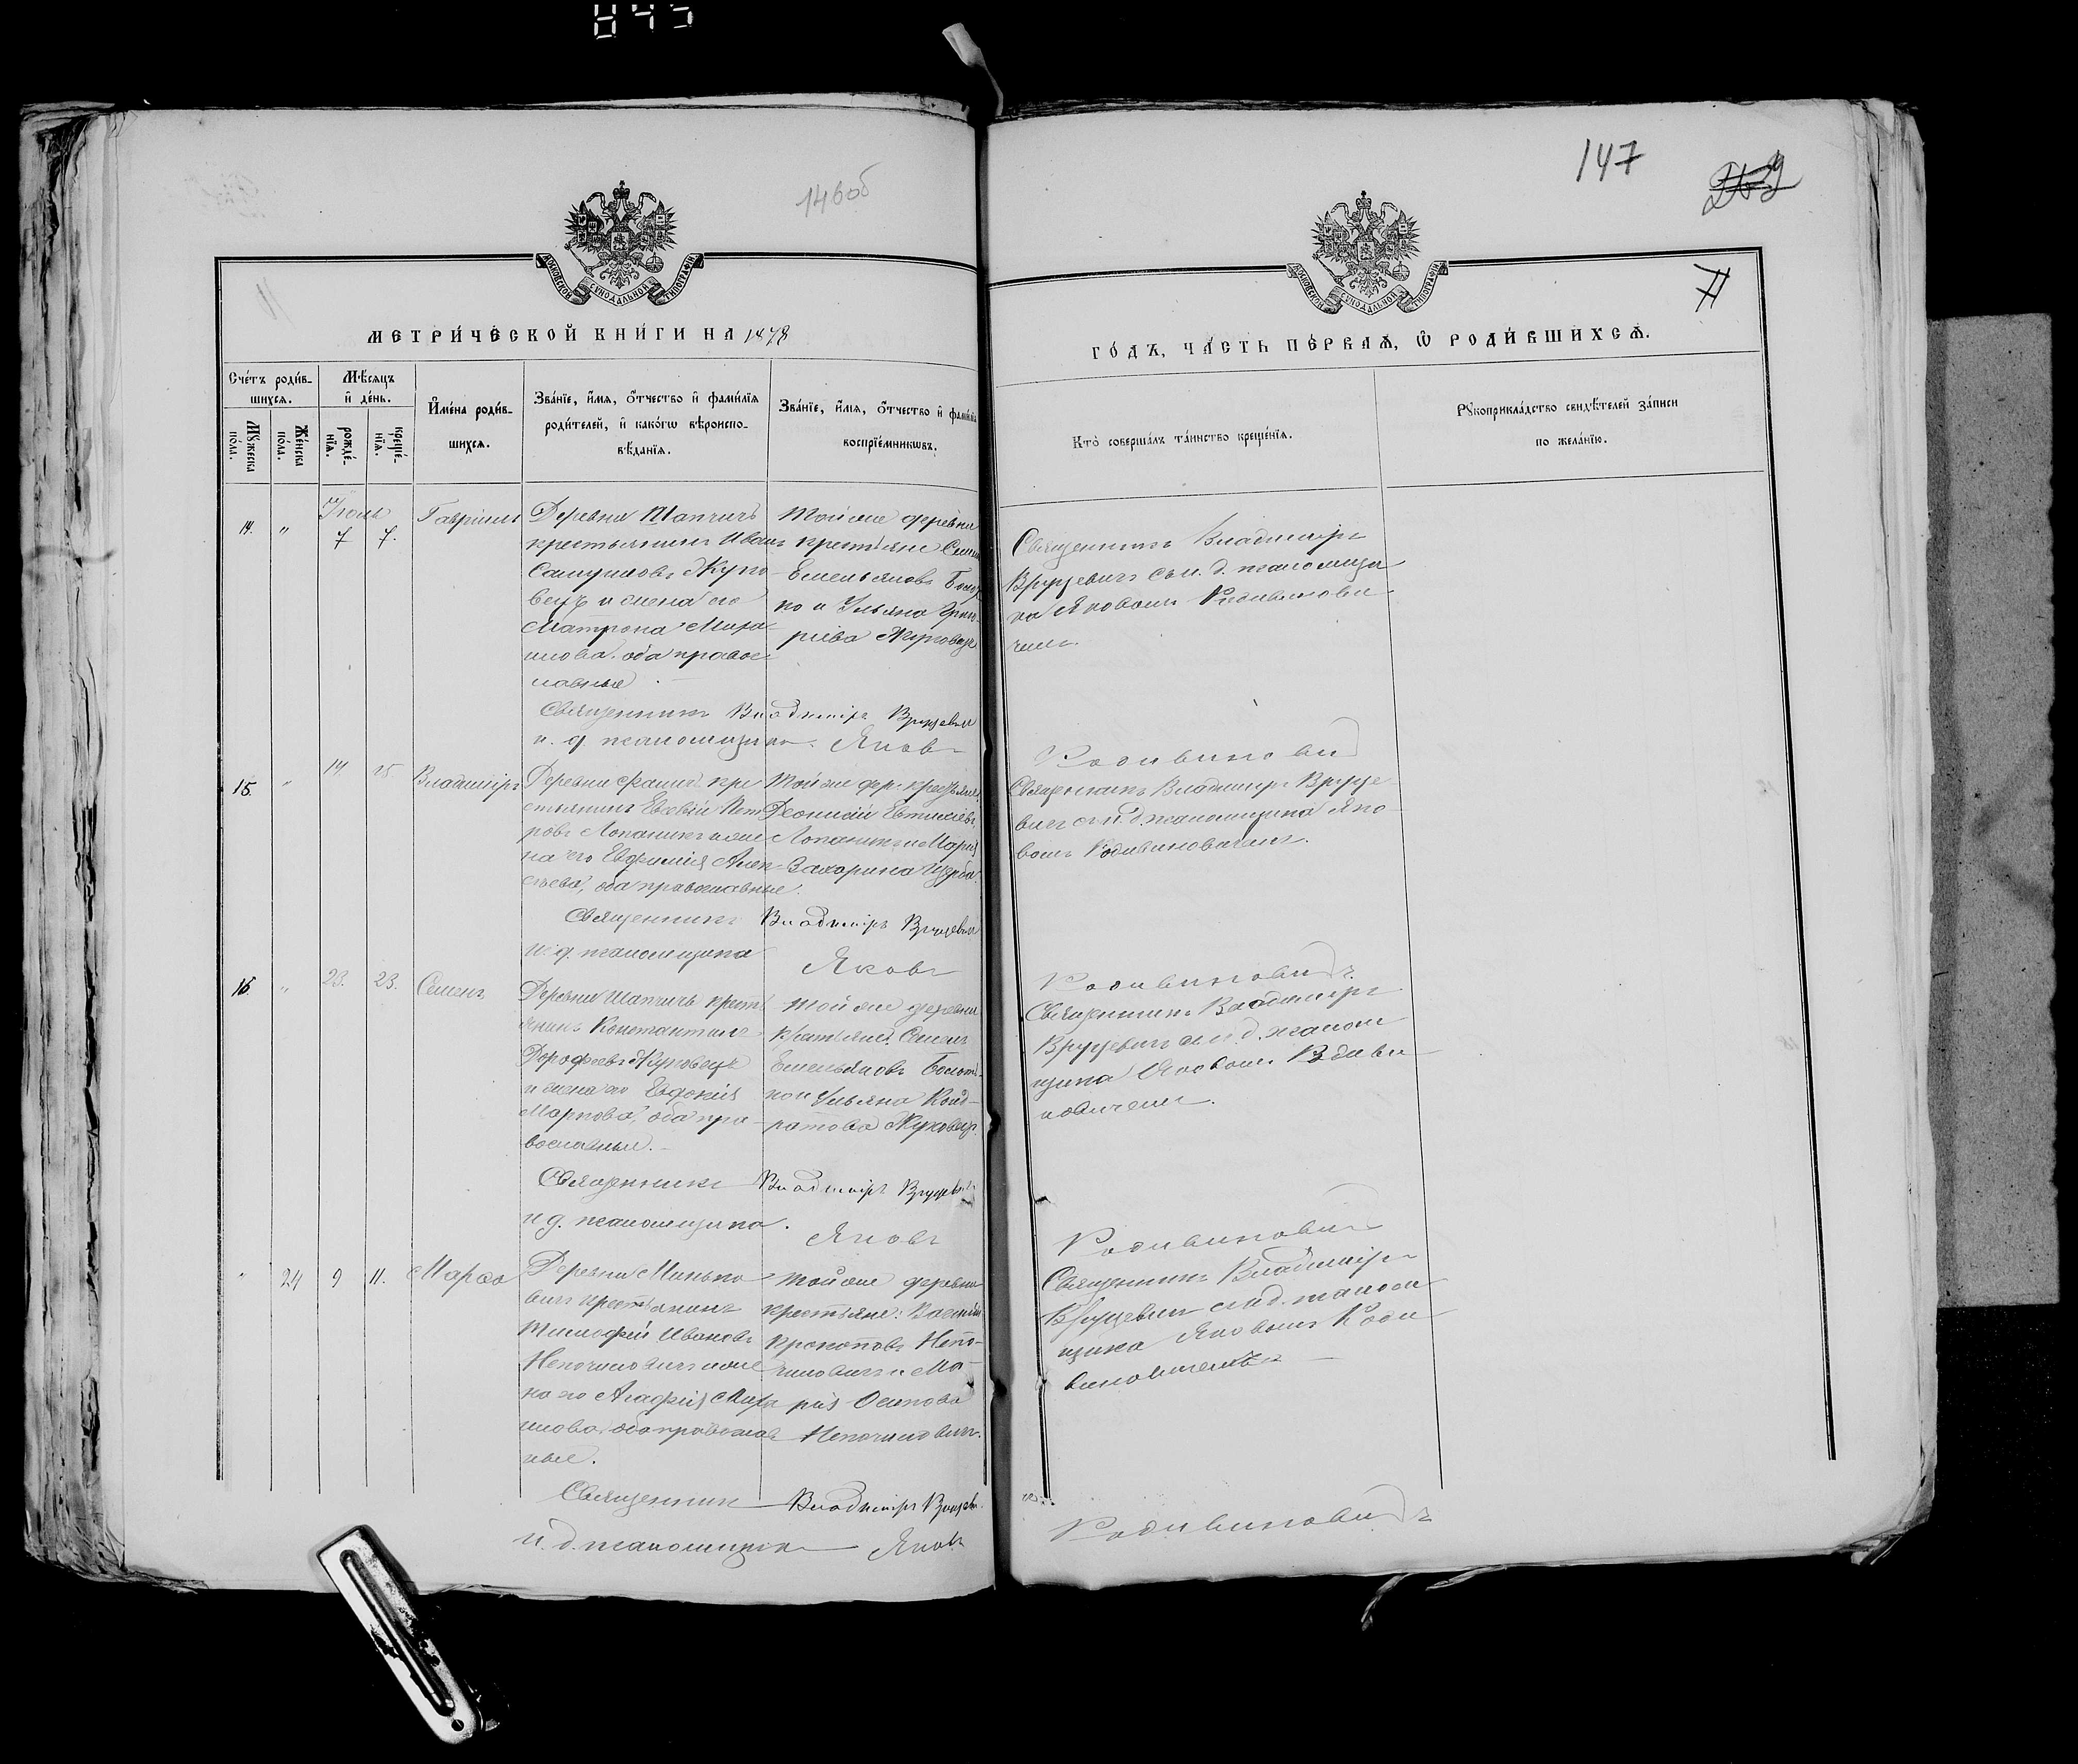 845
146об
147
МОСКОВСКОЙ СУНОДАЛЬНОЙ ТИПОГРАФІИ
МОСКОВСКОЙ СУНОДАЛЬНОЙ ТИПОГРАФІИ
МЕТРИ́ЧЕСКОЙ КНИ́ГИ НА 1878
ГО́ДЪ, ЧА́СТЬ ПЕ́РВАѦ, Ѿ РОДИ́ВШИХСѦ.
Сче́тъ роди́в-
шихсѧ.
Мѣ́сѧцъ
и҆ де́нь.
Мꙋ́жеска по́ла.
Же́нска по́ла.
рожде́-
нїѧ.
креще́-
нїѧ.
И҆мена̀ роди́в-
шихсѧ.
Зва́нїе, и҆́мѧ, ѻ҆́тчество и҆ фами́лїѧ
роди́телей, и҆ како́гѡ вѣроиспо-
вѣ́данїѧ.
Зва́нїе, и҆́мѧ, ѻ҆́тчество и҆ фами́лїѧ
воспрїе́мникѡвъ.
Кто̀ соверша́лъ та́инство креще́нїѧ.
Рꙋкоприкла́дство свидѣ́телей за́писи
по жела́нїю.
14. " Іюль 7 7. Гавріилъ
Деревни Шапчицъ
крестьянинъ Иванъ
Самуиловъ Жуко-
вецъ и жена его
Матрона Миха-
илова. оба правос-
лавные
Той же деревни
крестьяне Семенъ
Емельяновъ
и Ульяна Григо-
ріева Жуковецъ
Священникъ Владиміръ
Вруцевичъ съ и. д. псаломщи-
ка Яковомъ Родивинови-
чемъ.
Священникъ Владиміръ Вруцевичъ
и. д. псаломщика. Яковъ Родивиновичъ
15. " 14 15 Владиміръ
Деревни кре
стьянинъ Евсевій Пет
ровъ Лопаникъ и же
на его Евфимія Алек-
сѣева, оба православные.
Той же дер. крестьяне
Леонтій Евтихіевъ
Лопаникъ и Марія
Захарина
Священникъ Владиміръ Вруце-
вичъ съ и. д. псаломщика Яко-
вомъ Родивиновичемъ.
Священникъ Владиміръ Вруцевичъ
и. д. псаломщика Яковъ Родивиновичъ.
16. " 23. 23. Семенъ
Деревни Шапчицъ кресть
янинъ Константинъ
Дорофеевъ Жуковецъ
и жена его Евдокія
Маркова, оба пра-
вославные.
Той же деревни
крестьяне: Семенъ
Емельяновъ
и Ульяна Конд-
ратова Жуковецъ.
Священникъ Владиміръ
Вруцевичъ съ и. д. псалом
щика Яковомъ Родиви
новичемъ.
Священникъ Владиміръ Вруцевичъ
и д. псаломщика. Яковъ Родивиновичъ
" 24 9 11. Марѳа
Деревни Минько
вичъ крестьянинъ
Тимофей Ивановъ
Непочиловичъ и же
на его Агафія Миха
илова. оба правосла
вные.
Той же деревни
крестьяне: Василій
Прокоповъ Непо-
чиловичъ и Ма-
рія Осипова
Непочиловичъ.
Священникъ Владиміръ
Вруцевичъ съ и д. псалом
щика Яковомъ Роди
виновичемъ
Священникъ Владиміръ Вруцевичъ
и. д. псаломщика Яковъ Родивиновичъ